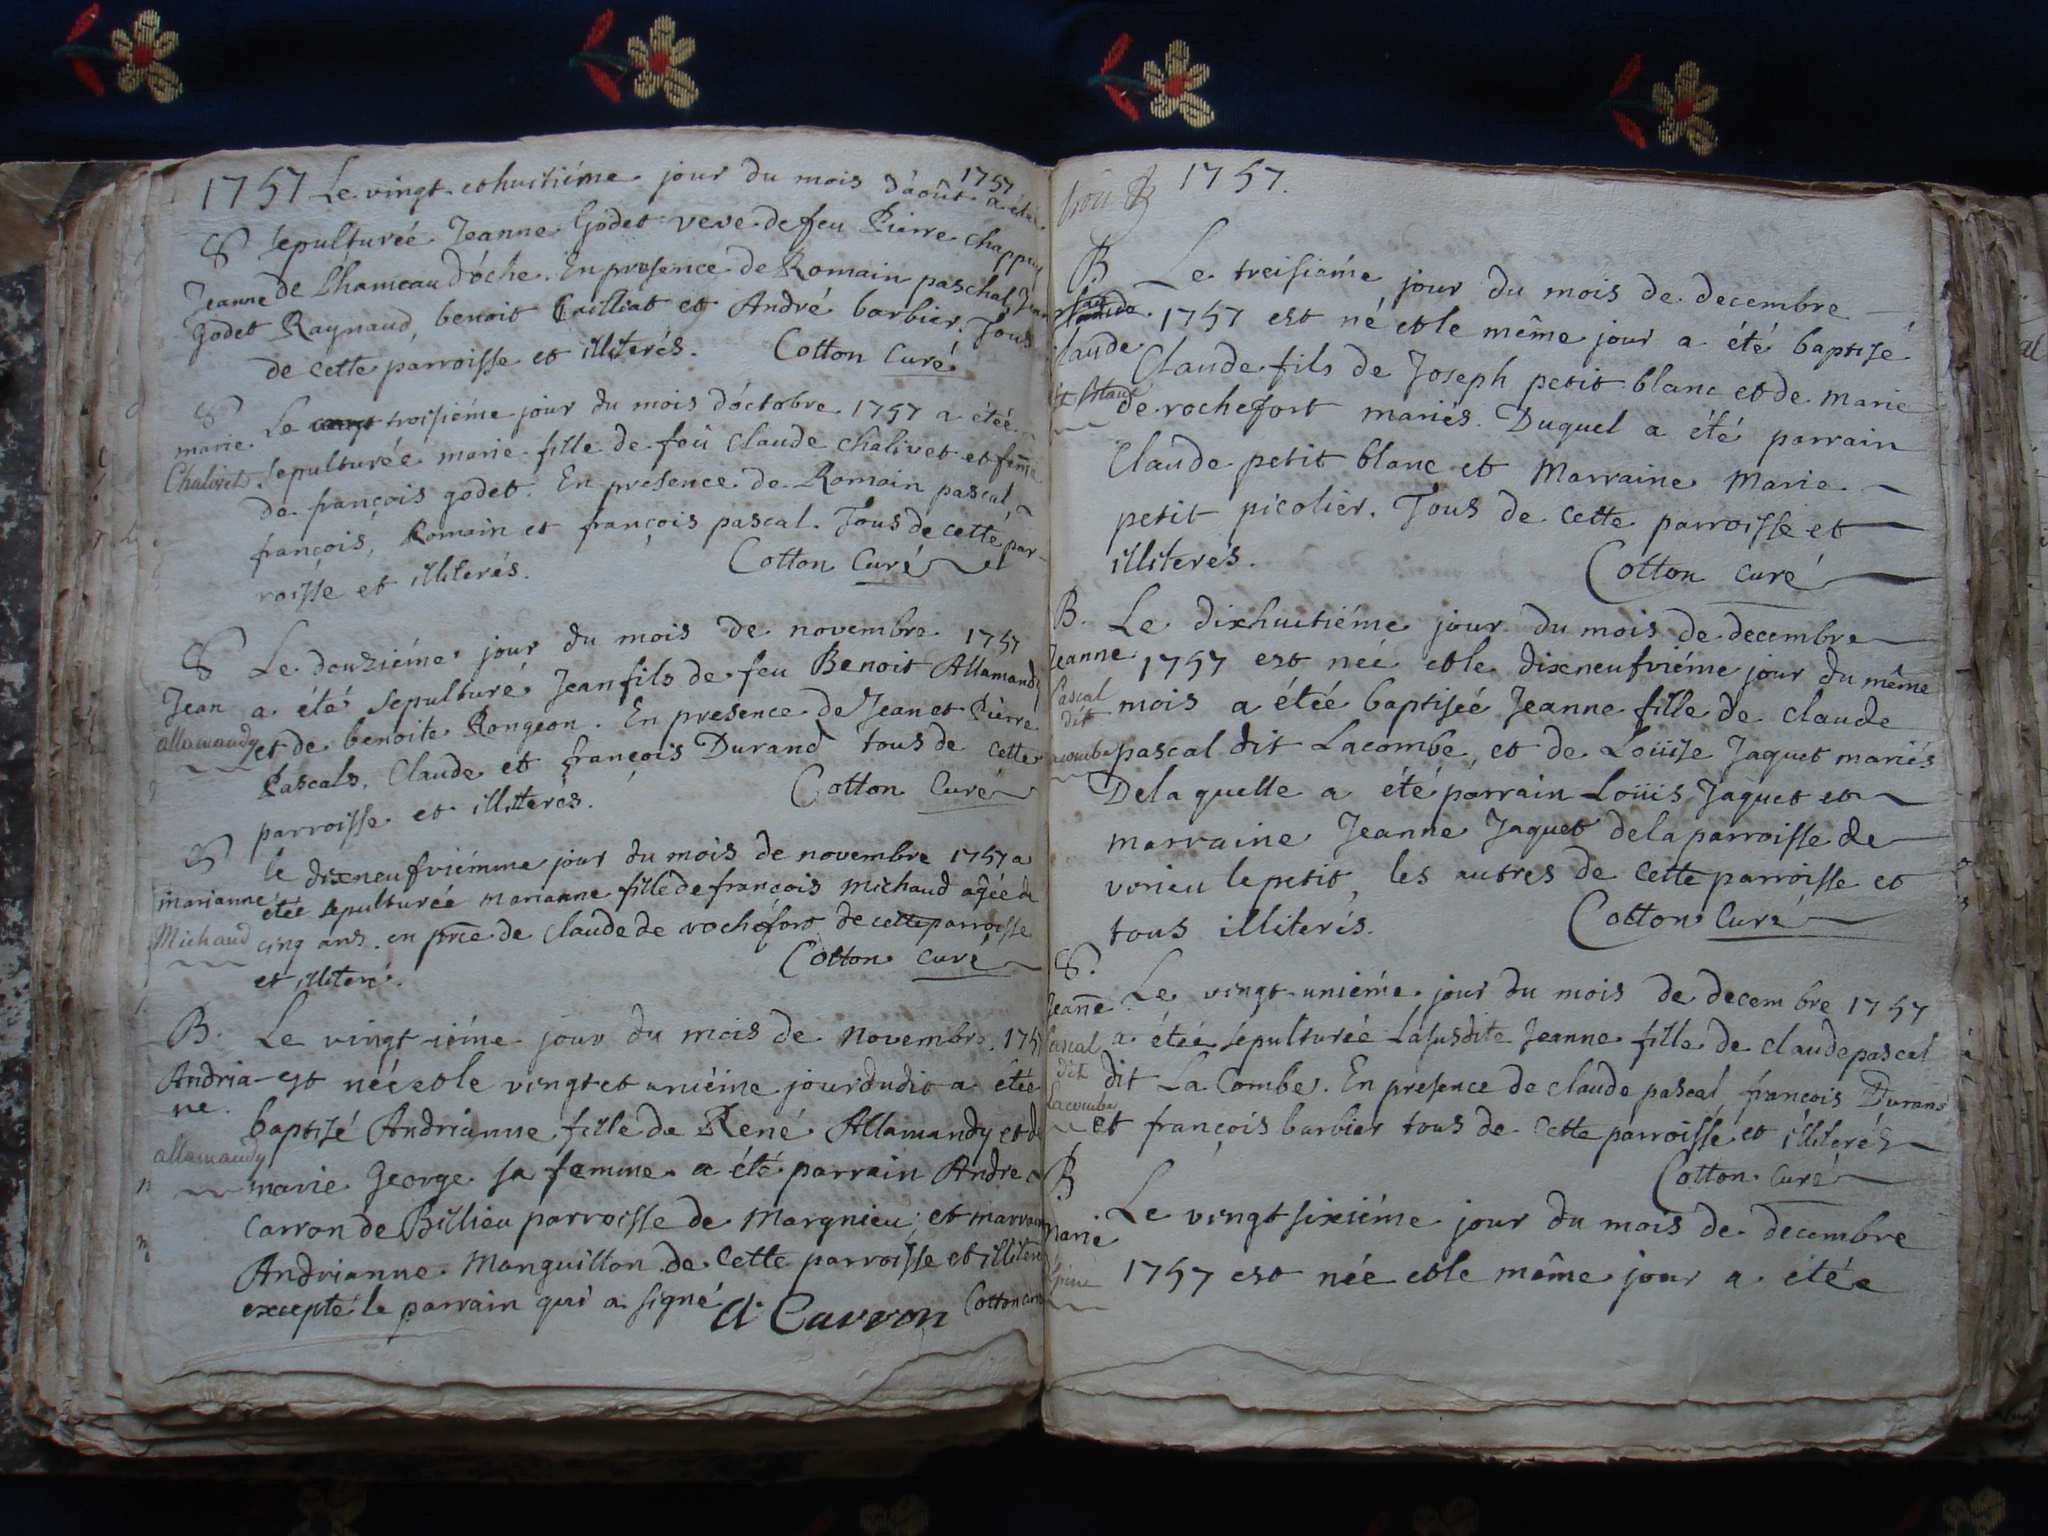 1757 Le vingt et huitiéme jour du mois d'août 1757 a été
S sepulturéé Jeanne Godet veve de feu Pierre chappuy
Jeanne de L'hameau d'óche. En presence de Romain paschal, Jean
Godet Raynaud, benoit Cailliat et André barbier. Tous
de cette parroisse et illiterés. Cotton Curé
S
marie Le troisiéme jour du mois d'óctobre 1757 a étée
Chalivet sepulturéé marie fille de feu claude chalivet et feme
de françois godet. En presence de Romain pascal,
françois, Romain et françois pascal. Tous de cette par-
roisse et illiterés. Cotton Curé
S Le douziéme jour du mois de novembre 1757
Jean a été sepulturé Jean fils de feu Benoit Allamandy
allamandy et de benoite Rongeon. En presence de Jean et Pierre
Pascals, Claude et françois Durand tous de cette
parroisse et illiterés. Cotton Curé
S le dixneufviémme jour du mois de novembre 1757 a
marianne étée sepulturéé marianne fille de françois michaud agéé de
Michaud cinq ans. en pnce de claude de rochefort de cette parroisse
et illiteré. Cotton Curé
B. Le vingt-iéme jour du mois de novembre 1757
Andria- est néé et le vingt et uniéme jour dudit a étée
ne. baptisé Andrianne fille de René Allamandy et de
allamandy marie George sa femme a été parrain André
Carron de Billieu parroisse de Margnieu; et marraine
Andrianne Monguillon de cette parroisse et illiteré
excepté le parrain qui a signé A Carron Cotton curé
1757.
B Le treisiéme jour du mois de decembre
1757 est né et le même jour a été baptisé
claude Claude fils de Joseph petit blanc et de marie
de rochefort mariés. Duquel a été parrain
Claude petit blanc et Marraine Marie
petit picolier. Tous de cette parroisse et
illiterés. Cotton curé
B. Le dixhuitiéme jour du mois de decembre
Jeanne 1757 est néé et le dixneufviéme jour du même
Pascal
dit mois a étéé baptiséé Jeanne fille de claude
Lacombe pascal dit Lacombe, et de Loüise Jaquet mariés
De laquelle a été parrain Loüis Jaquet et
marraine Jeanne Jaquet de la parroisse de
virieu le petit, les autres de cette parroisse et
tous illiterés. Cotton Curé
S.
Jeanne Le vingt-uniéme jour du mois de decembre 1757
Pascal a étéé sepulturéé la susdite Jeanne fille de claude pascal
dit dit La Combe. En presence de claude pascal, françois Durand
Lacombe et françois barbier tous de cette parroisse et illiterés
Cotton Curé
B
Marie Le vingt sixiéme jour du mois de decembre
1757 est née et le même jour a étée